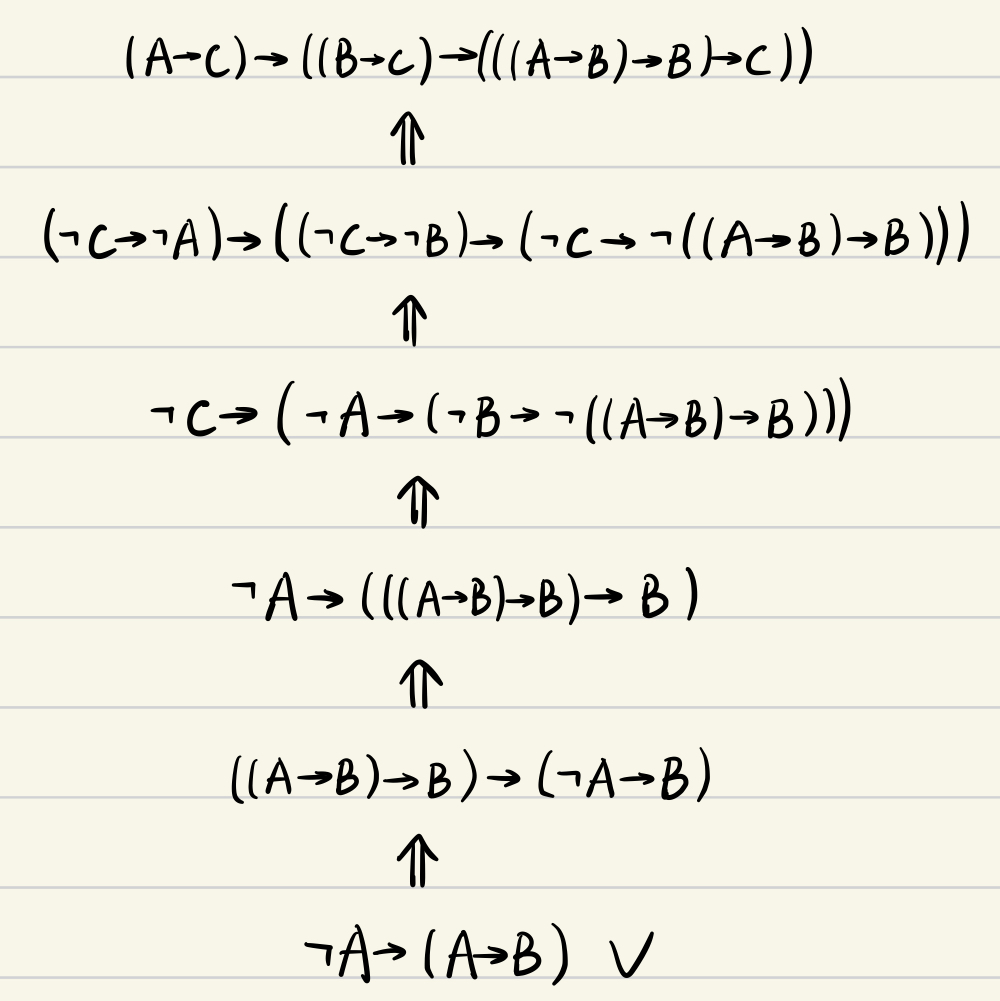 (A→C)→((B→C)→(((A→B)→B)→C))
⇑
(¬C→¬A)→((¬C→¬B)→(¬C→¬((A→B)→B)))
⇑
¬C→(¬A→(¬B→¬((A→B)→B)))
⇑
¬A→(((A→B)→B)→B)
⇑
((A→B)→B)→(¬A→B)
⇑
¬A→(A→B) ✓